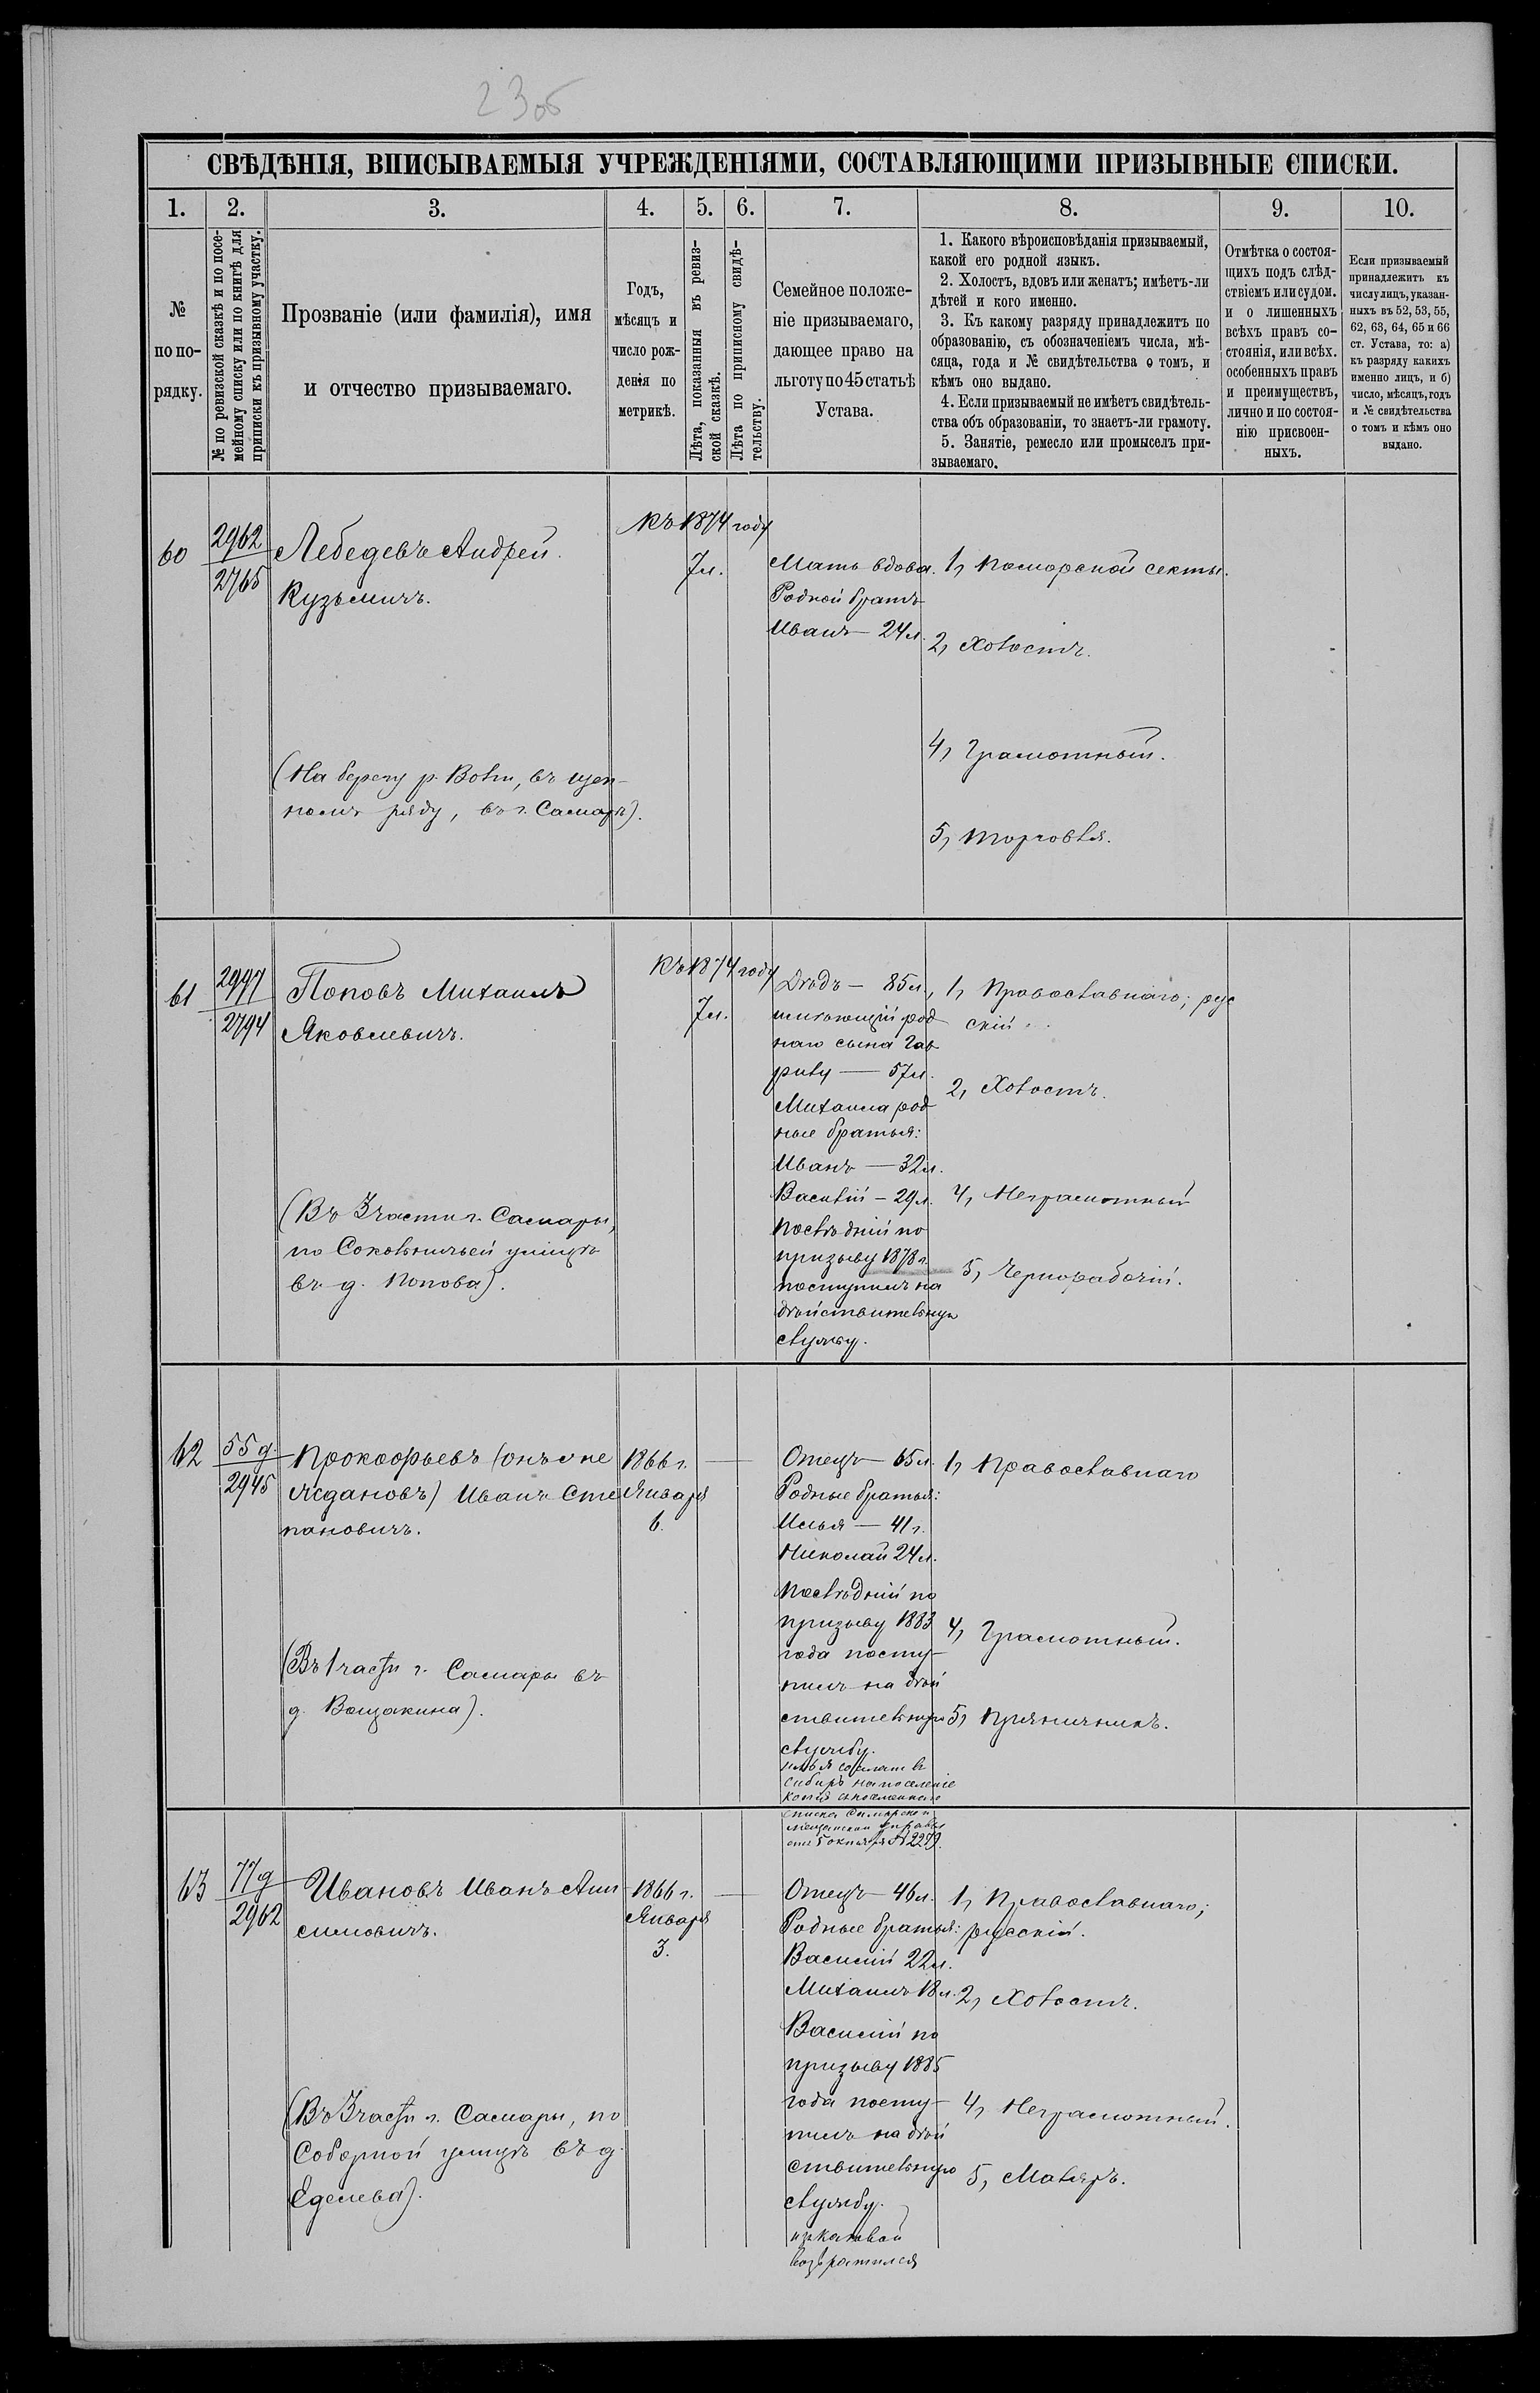 23об
СВѢДѢНІЯ, ВПИСЫВАЕМЫЯ УЧРЕЖДЕНІЯМИ, СОСТАВЛЯЮЩИМИ ПРИЗЫВНЫЕ СПИСКИ.
1.
2.
3.
4.
5.
6.
7.
8.
9.
10.
№
по по-
рядку.
№ по ревизской сказкѣ и по посе-
мейному списку или по книгѣ для
приписки къ призывному участку.
Прозваніе (или фамилія), имя
и отчество призываемаго.
Годъ,
мѣсяцъ и
число рож-
денія по
метрикѣ.
Лѣта, показанныя въ ревиз-
ской сказкѣ.
Лѣта по приписному свидѣ-
тельству.
Семейное положе-
ніе призываемаго,
дающее право на
льготу по 45 статьѣ
Устава.
1. Какого вѣроисповѣданія призываемый,
какой его родной языкъ.
2. Холостъ, вдовъ или женатъ; имѣетъ-ли
дѣтей и кого именно.
3. Къ какому разряду принадлежитъ по
образованію, съ обозначеніемъ числа, мѣ-
сяца, года и № свидѣтельства о томъ, и
кѣмъ оно выдано.
4. Если призываемый не имѣетъ свидѣтель-
ства объ образованіи, то знаетъ-ли грамоту.
5. Занятіе, ремесло или промыселъ при-
зываемаго.
Отмѣтка о состоя-
щихъ подъ слѣд-
ствіемъ или судом.
и о лишенныхъ
всѣхъ правъ со-
стоянія, или всѣх.
особенныхъ правъ
и преимуществъ,
лично и по состоя-
нію присвоен-
ныхъ.
Если призываемый
принадлежитъ къ
числу лицъ, указан-
ныхъ въ 52, 53, 55,
62, 63, 64, 65 и 66
ст. Устава, то: а)
къ разряду какихъ
именно лицъ, и б)
число, мѣсяцъ, годъ
и № свидѣтельства
о томъ и кѣмъ оно
выдано.
60
2962
2765
Лебедевъ Андрей
Кузьмичъ.
(На берегу р. Волги, въ щеп-
номъ ряду, въ г. Самарѣ).
Къ 1874 году
7 л.
Мать вдова.
Родной братъ
Иванъ — 24 л.
1, Поморской секты.
2, Холостъ.
4, Грамотный.
5, Торговля.
61
2997
2794
Поповъ Михаилъ
Яковлевичъ.
(Въ 3 части г. Самары,
по Сокольничьей улицѣ
въ д. Попова).
Къ 1874 году
7 л.
Дѣдъ — 85 л.,
имѣющій род
наго сына Гав
рилу — 57 л.
Михаила род
ные братья:
Иванъ — 32 л.
Василій — 29 л.
Послѣдній по
призыву 1878 г.
поступилъ на
дѣйствительную
службу.
1, Православнаго; рус
скій.
2, Холостъ.
4, Неграмотный
5, Чернорабочій.
62
55 д.
2945
Прокофьевъ (онъ же
Ждановъ) Иванъ Сте
пановичъ.
(Въ 1 части г. Самары въ
д. Вощакина).
1866 г.
Января
6.
Отецъ — 65 л.
Родные братья:
Илья — 41 г.
Николай 24 л.
Послѣдній по
призыву 1883
года посту-
пилъ на дѣй
ствительную
службу.
Илья сосланъ въ
Сибирь на поселеніе
списка Самарской
мѣщанской управы
отъ 5 октября № 2279.
1, Православнаго
4, Грамотный.
5, Пряничникъ.
63
77 д
2962
Ивановъ Иванъ Ани
симовичъ.
(Въ 3 части г. Самары, по
Соборной улицѣ въ д.
Еделева).
1866 г.
Января
3.
Отецъ — 46 л.
Родные братья:
Василій 22 л.
Михаилъ 18 л.
Василій по
призыву 1885
года посту-
пилъ на дѣй
ствительную
службу.
изъ каковой
возвратился
1, Православнаго;
русскій.
2, Холостъ.
4, Неграмотный.
5, Маляръ.